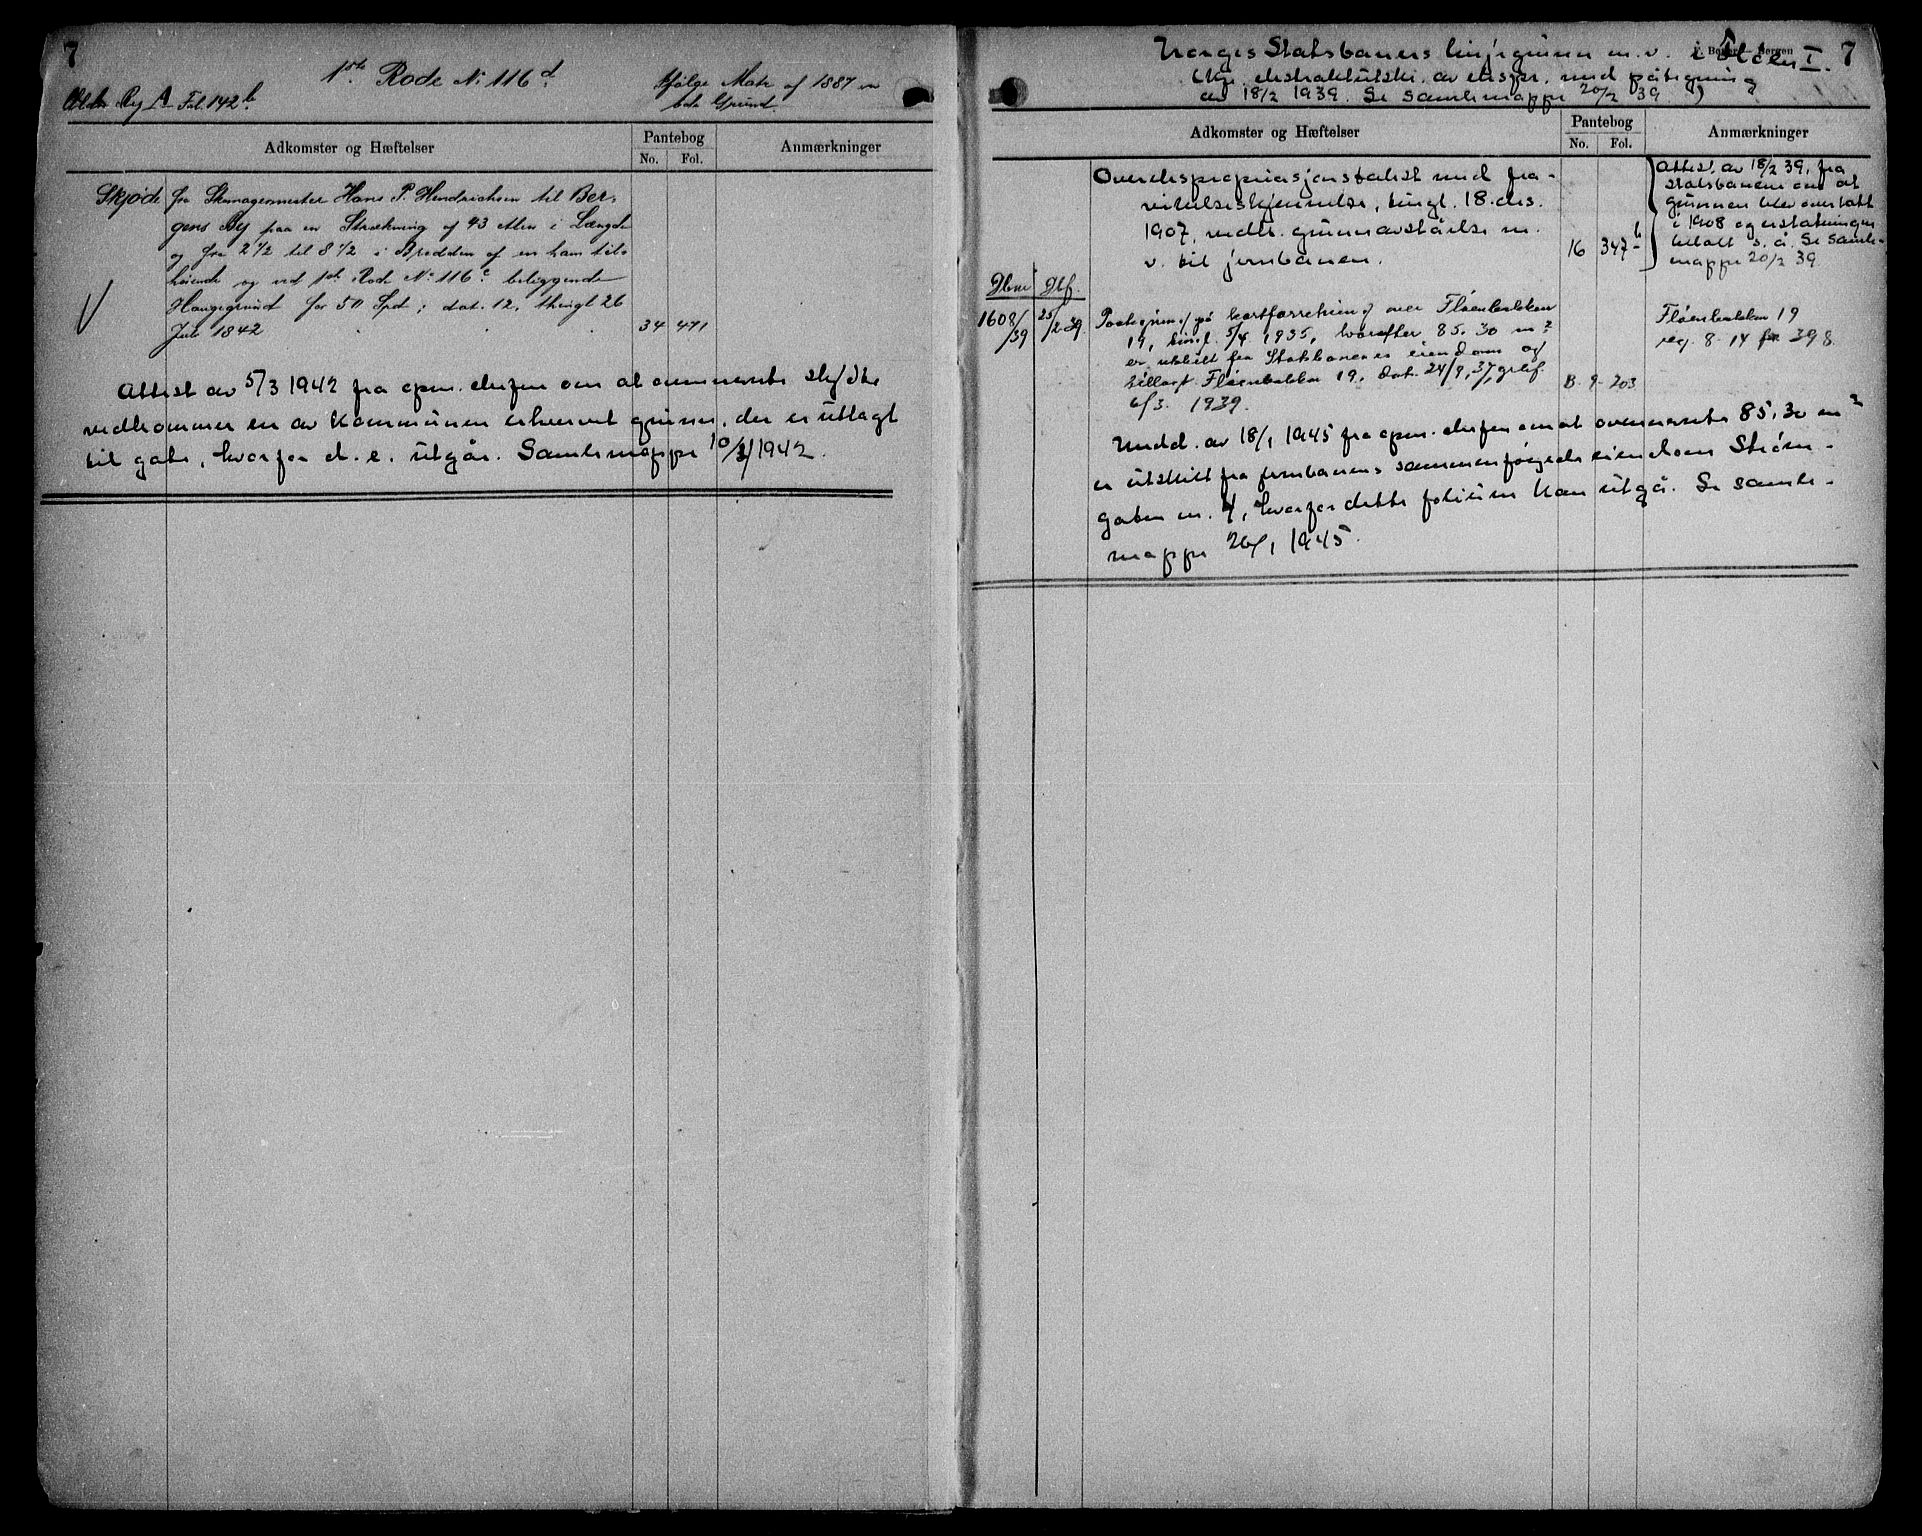 7
1ste Rode No 116 d
Ifølge Matr af 1887 en
bar Grund.
Ældre Reg A Fol 142 b
Adkomster og Hæftelser
Pantebog
No. Fol.
Anmærkninger
Skjøde fra Skomagermester Hans P. Hendrichsen til Ber-
gens By paa en Strækning af 43 Alen i Længde
og fra 2 1/2 til 8 1/2 i Bredden af en ham til-
hørende og ved 1ste Rode No 116 c beliggende
Haugegrund for 50 Spd; dat. 12, thingl 26
Juli 1842 34 471
Attest av 5/3 1942 fra opm. chefen om at ovennevnte skjøte
vedkommer en av kommunen erhvervet grunn, der er utlagt
til gate, hvorfor d. e. utgår. Samlemappe 10/3 1942.
7
Norges Statsbaners linjegrunn m. v. i Fløen I.
F. Beyer Bergen
(Nye ekstraktutskr. av ekspr. med påtegning
av 18/2 1939. Se samlemappe 20/2 39)
Adkomster og Hæftelser
Pantebog
No. Fol.
Anmærkninger
Overekspropriasjonstakst med fra-
vikelseskjennelse, tingl. 18. des.
1907, vedk. grunnavståelse m.
v. til jernbanen. 16 347 b
Attest av 18/2 39, fra
statsbanene om at
grunnen blev overtatt
i 1908 og erstatningen
betalt s. å. Se samle-
mappe 20/2 39.
1608/39 25/2 39.
Paategning på kartforretning over Fløenbakken
19, tingl. 5/4 1935, hvorefter 85.30 m2
er utskilt fra Statsbanenes eiendom og
tillagt Fløenbakken 19, dat. 24/9, 37, 
6/3. 1939. B. 9 - 203
Fløenbakken 19
reg. 8 - 14 fol 398
Medd. av 18/1 1945 fra opm. chefen om at ovennevnte 85.30 m2
er utskilt fra jernbanens sammenføyede eiendom Strøm-
gaten nr. 4, hvorfor dette folium kan utgå. Se samle-
mappe 26/1 1945.